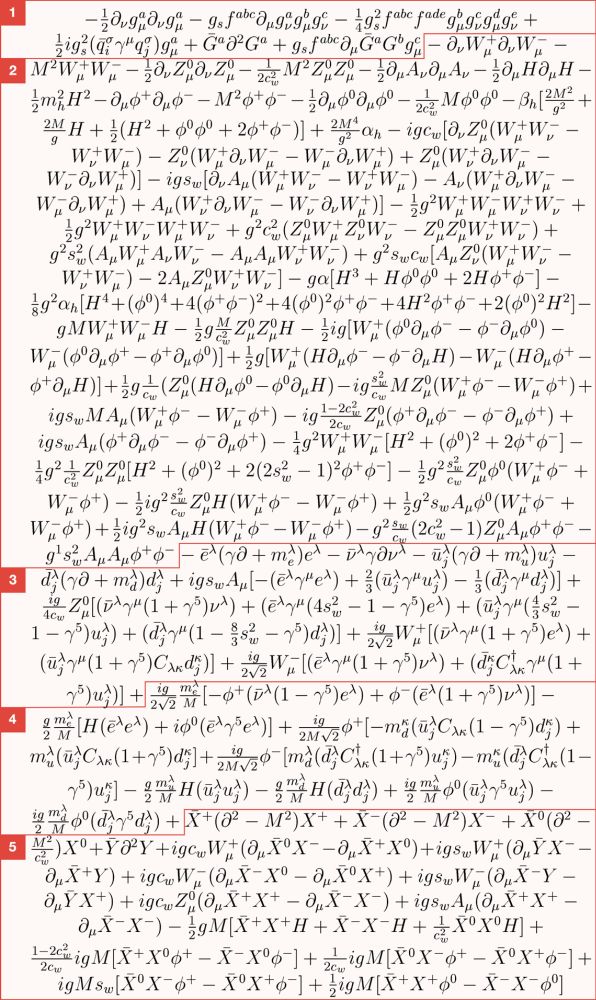 1
−½∂νg^a_μ∂νg^a_μ − g_s f^{abc}∂μg^a_νg^b_μg^c_ν − ¼g²_s f^{abc}f^{ade}g^b_μg^c_νg^d_μg^e_ν +
½ig²_s(q̄^σ_iγ^μq^σ_j)g^a_μ + Ḡ^a∂²G^a + g_s f^{abc}∂μḠ^aG^bg^c_μ − ∂νW^+_μ∂νW^-_μ −
2
M²W^+_μW^-_μ − ½∂νZ^0_μ∂νZ^0_μ − 1/(2c²_w) M²Z^0_μZ^0_μ − ½∂μAν∂μAν − ½∂μH∂μH −
½m²_hH² − ∂μφ^+∂μφ^- − M²φ^+φ^- − ½∂μφ^0∂μφ^0 − 1/(2c²_w) Mφ^0φ^0 − β_h[2M²/g² +
2M/g H + ½(H² + φ^0φ^0 + 2φ^+φ^-)] + 2M⁴/g² α_h − igc_w[∂νZ^0_μ(W^+_μW^-_ν −
W^+_νW^-_μ) − Z^0_ν(W^+_μ∂νW^-_μ − W^-_μ∂νW^+_μ) + Z^0_μ(W^+_ν∂νW^-_μ −
W^-_ν∂νW^+_μ)] − igs_w[∂νAμ(W^+_μW^-_ν − W^+_νW^-_μ) − Aν(W^+_μ∂νW^-_μ −
W^-_μ∂νW^+_μ) + Aμ(W^+_ν∂νW^-_μ − W^-_ν∂νW^+_μ)] − ½g²W^+_μW^-_μW^+_νW^-_ν +
½g²W^+_μW^-_νW^+_μW^-_ν + g²c²_w(Z^0_μW^+_μZ^0_νW^-_ν − Z^0_μZ^0_μW^+_νW^-_ν) +
g²s²_w(AμW^+_μAνW^-_ν − AμAμW^+_νW^-_ν) + g²s_wc_w[AμZ^0_ν(W^+_μW^-_ν −
W^+_νW^-_μ) − 2AμZ^0_μW^+_νW^-_ν] − gα[H³ + Hφ^0φ^0 + 2Hφ^+φ^-] −
⅛g²α_h[H⁴+(φ^0)⁴+4(φ^+φ^-)²+4(φ^0)²φ^+φ^-+4H²φ^+φ^-+2(φ^0)²H²]−
gMW^+_μW^-_μH − ½g M/c²_w Z^0_μZ^0_μH − ½ig[W^+_μ(φ^0∂μφ^- − φ^-∂μφ^0) −
W^-_μ(φ^0∂μφ^+ − φ^+∂μφ^0)] + ½g[W^+_μ(H∂μφ^- − φ^-∂μH) − W^-_μ(H∂μφ^+ −
φ^+∂μH)] + ½g 1/c_w (Z^0_μ(H∂μφ^0 − φ^0∂μH) − ig s²_w/c_w MZ^0_μ(W^+_μφ^- − W^-_μφ^+) +
igs_wMAμ(W^+_μφ^- − W^-_μφ^+) − ig (1−2c²_w)/(2c_w) Z^0_μ(φ^+∂μφ^- − φ^-∂μφ^+) +
igs_wAμ(φ^+∂μφ^- − φ^-∂μφ^+) − ¼g²W^+_μW^-_μ[H² + (φ^0)² + 2φ^+φ^-] −
¼g² 1/c²_w Z^0_μZ^0_μ[H² + (φ^0)² + 2(2s²_w − 1)²φ^+φ^-] − ½g² s²_w/c_w Z^0_μφ^0(W^+_μφ^- +
W^-_μφ^+) − ½ig² s²_w/c_w Z^0_μH(W^+_μφ^- − W^-_μφ^+) + ½g²s_wAμφ^0(W^+_μφ^- +
W^-_μφ^+) + ½ig²s_wAμH(W^+_μφ^- − W^-_μφ^+) − g² s_w/c_w (2c²_w − 1)Z^0_μAμφ^+φ^- −
g¹s²_wAμAμφ^+φ^- − ē^λ(γ∂ + m^λ_e)e^λ − ν̄^λγ∂ν^λ − ū^λ_j(γ∂ + m^λ_u)u^λ_j −
3
d̄^λ_j(γ∂ + m^λ_d)d^λ_j + igs_wAμ[−(ē^λγ^μe^λ) + ⅔(ū^λ_jγ^μu^λ_j) − ⅓(d̄^λ_jγ^μd^λ_j)] +
ig/(4c_w) Z^0_μ[(ν̄^λγ^μ(1 + γ⁵)ν^λ) + (ē^λγ^μ(4s²_w − 1 − γ⁵)e^λ) + (ū^λ_jγ^μ(4/3 s²_w −
1 − γ⁵)u^λ_j) + (d̄^λ_jγ^μ(1 − 8/3 s²_w − γ⁵)d^λ_j)] + ig/(2√2) W^+_μ[(ν̄^λγ^μ(1 + γ⁵)e^λ) +
(ū^λ_jγ^μ(1 + γ⁵)C_{λκ}d^κ_j)] + ig/(2√2) W^-_μ[(ē^λγ^μ(1 + γ⁵)ν^λ) + (d̄^κ_jC^†_{λκ}γ^μ(1 +
γ⁵)u^λ_j)] + ig/(2√2) m^λ_e/M [−φ^+(ν̄^λ(1 − γ⁵)e^λ) + φ^-(ē^λ(1 + γ⁵)ν^λ)] −
4
g/2 m^λ_e/M [H(ē^λe^λ) + iφ^0(ē^λγ⁵e^λ)] + ig/(2M√2) φ^+[−m^κ_d(ū^λ_jC_{λκ}(1 − γ⁵)d^κ_j) +
m^λ_u(ū^λ_jC_{λκ}(1 + γ⁵)d^κ_j] + ig/(2M√2) φ^-[m^λ_d(d̄^λ_jC^†_{λκ}(1+γ⁵)u^κ_j) − m^κ_u(d̄^λ_jC^†_{λκ}(1−
γ⁵)u^κ_j] − g/2 m^λ_u/M H(ū^λ_ju^λ_j) − g/2 m^λ_d/M H(d̄^λ_jd^λ_j) + ig/2 m^λ_u/M φ^0(ū^λ_jγ⁵u^λ_j) −
ig/2 m^λ_d/M φ^0(d̄^λ_jγ⁵d^λ_j) + X̄^+(∂² − M²)X^+ + X̄^-(∂² − M²)X^- + X̄^0(∂² −
5
M²/c²_w)X^0 + Ȳ∂²Y + igc_wW^+_μ(∂μX̄^0X^- − ∂μX̄^+X^0) + igs_wW^+_μ(∂μȲX^- −
∂μX̄^+Y) + igc_wW^-_μ(∂μX̄^-X^0 − ∂μX̄^0X^+) + igs_wW^-_μ(∂μX̄^-Y −
∂μȲX^+) + igc_wZ^0_μ(∂μX̄^+X^+ − ∂μX̄^-X^-) + igs_wAμ(∂μX̄^+X^+ −
∂μX̄^-X^-) − ½gM[X̄^+X^+H + X̄^-X^-H + 1/c²_w X̄^0X^0H] +
(1−2c²_w)/(2c_w) igM[X̄^+X^0φ^+ − X̄^-X^0φ^-] + 1/(2c_w) igM[X̄^0X^-φ^+ − X̄^0X^+φ^-] +
igMs_w[X̄^0X^-φ^+ − X̄^0X^+φ^-] + ½igM[X̄^+X^+φ^0 − X̄^-X^-φ^0]